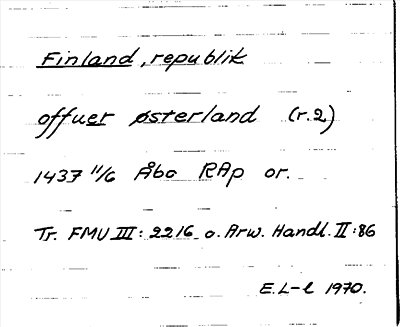 Finland, republik
offuer østerland (r.2)
1437 11/6 Åbo RAp or.
Tr. FMU III: 2216 o. Arw. Handl. II:86
E.L-l 1970.